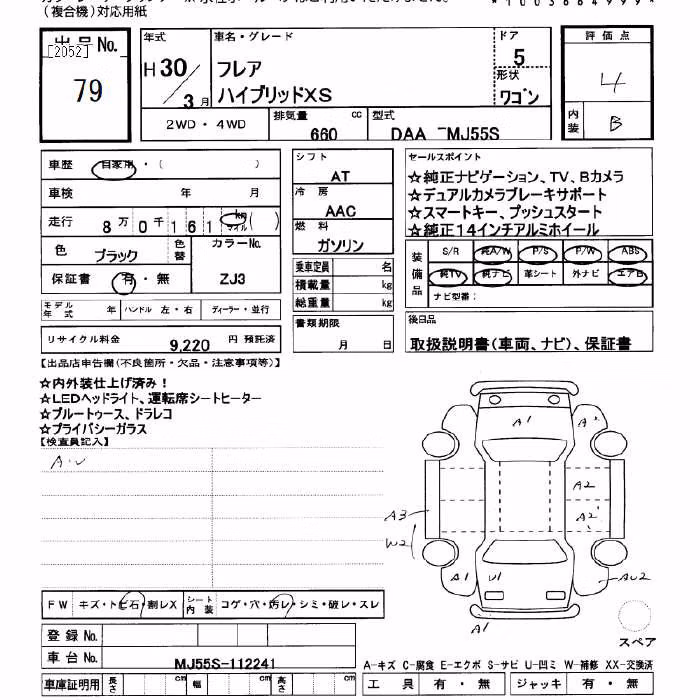 (複合機)対応用紙
*1003664999*
出品No.
[2052]
79
年式
H30/3月
車名・グレード
フレア
ハイブリッドXS
ドア
5
形状
ワゴン
評価点
4
内装
B
2WD・4WD
排気量 cc
660
型式
DAA-MJ55S
車歴 自家用・( )
車検 年 月
走行 8万0千161 km マイル ( )
色 ブラック
色替
カラーNo.
ZJ3
保証書 有・無
モデル年式 年
ハンドル 左・右
ディーラー・並行
リサイクル料金
9,220 円 預託済
シフト
AT
冷房
AAC
燃料
ガソリン
乗車定員 名
積載量 kg
総重量 kg
書類期限
月 日
セールスポイント
☆純正ナビゲーション、TV、Bカメラ
☆デュアルカメラブレーキサポート
☆スマートキー、プッシュスタート
☆純正14インチアルミホイール
装備品
S/R 純A/W P/S P/W ABS
純TV 純ナビ 革シート 外ナビ エアB
ナビ型番:
後日品
取扱説明書(車両、ナビ)、保証書
【出品店申告欄(不良箇所・欠品・注意事項等)】
☆内外装仕上げ済み!
☆LEDヘッドライト、運転席シートヒーター
☆ブルートゥース、ドラレコ
☆プライバシーガラス
【検査員記入】
A・U
A1
A2
A2
A2'
A3
W2
A1
U1
AU2
A1
スペア
FW キズ・トビ石・割レX
シート内装 コゲ・穴・汚レ・シミ・破レ・スレ
登録No.
車台No.
MJ55S-112241
車庫証明用 長さ cm 幅 cm 高さ cm
A-キズ C-腐食 E-エクボ S-サビ U-凹ミ W-補修 XX-交換済
工具 有・無 ジャッキ 有・無